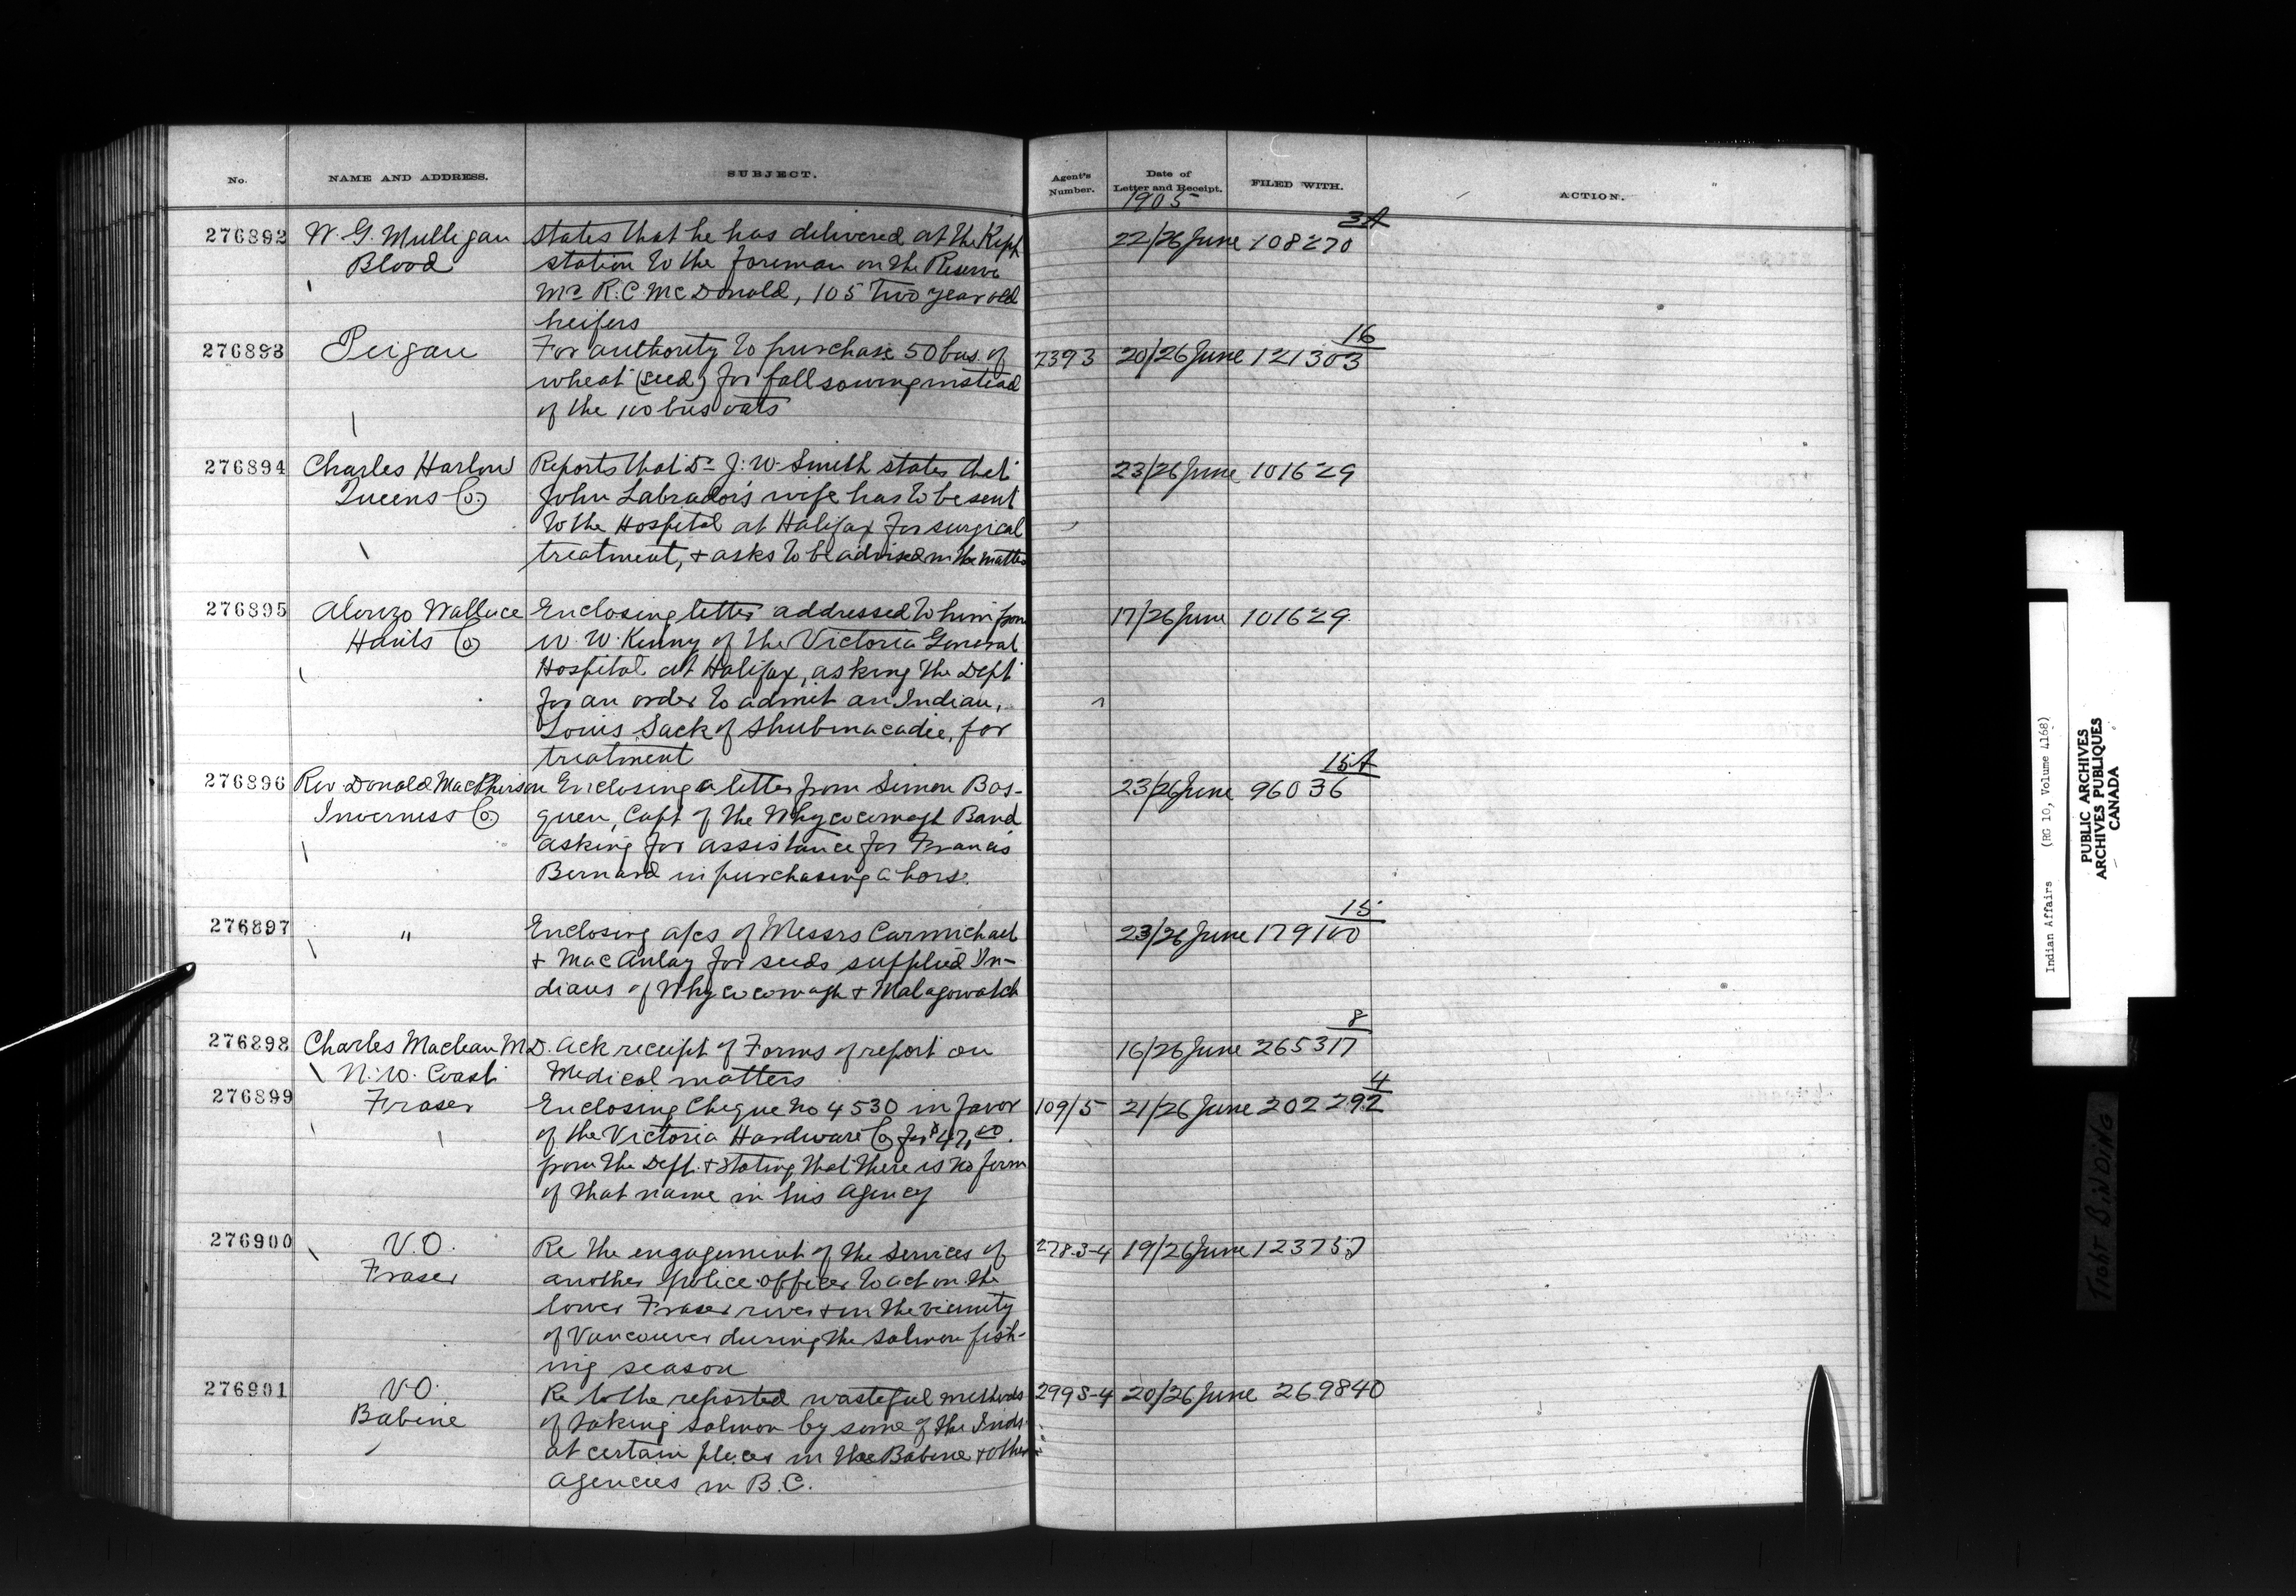 No. NAME AND ADDRESS. SUBJECT. Agent's Number. Date of Letter and Receipt. FILED WITH. ACTION.
1905
3A
276892 W. G. Mulligan States that he has delivered at the 22/26 June 108270
Blood station to the foreman on the Reserve
Mr R. C. McDonald, 105 two year old
heifers
16
276893 Peigan For authority to purchase 50 bus. of 2393 20/26 June 121303
wheat (seed) for fall sowing instead
of the 100 bus oats
276894 Charles Harlow Reports that Dr J. W. Smith states that 23/26 June 101629
Queens Co. John Labrador's wife has to be sent
to the Hospital at Halifax for surgical
treatment, + asks to be advised in the matter
276895 Alonzo Wallace Enclosing letter addressed to him from 17/26 June 101629
Hants Co W. W. Kenny of the Victoria General
Hospital at Halifax, asking the Dept
for an order to admit an Indian,
Louis Sack of Shubenacadie, for
treatment
15A
276896 Rev Donald MacPherson Enclosing a letter from Simon Bas- 23/26 June 96036
Inverness Co. quen, Capt of the Whycocomagh Band
asking for assistance for Francis
Bernard in purchasing a horse.
15
276897 " Enclosing a/cs of Messrs Carmichael 23/26 June 179100
+ MacAulay for seeds supplied In-
dians of Whycocomagh + Malagawatch
8
276898 Charles Maclean M.D. Ack receipt of Forms of report on 16/26 June 265317
N. W. Coast Medical matters
4
276899 Fraser Enclosing Cheque No 4530 in favor 109/5 21/26 June 202292
of the Victoria Hardware Co for $47.
from the Dept. + stating that there is no firm
of that name in his Agency
276900 V.O. Re the engagement of the services of 278.3-4 19/26 June
Fraser another police officer to act on the
lower Fraser river + in the vicinity
of Vancouver during the salmon fish-
ing season
276901 V.O. Re to the reported wasteful methods 299 -4 20/26 June 269840
Babine of taking salmon by some of the Inds
at certain places in the Babine + other
agencies in B.C.
Indian Affairs (RG 10, Volume 4168)
PUBLIC ARCHIVES
ARCHIVES PUBLIQUES
CANADA
TIGHT BINDING